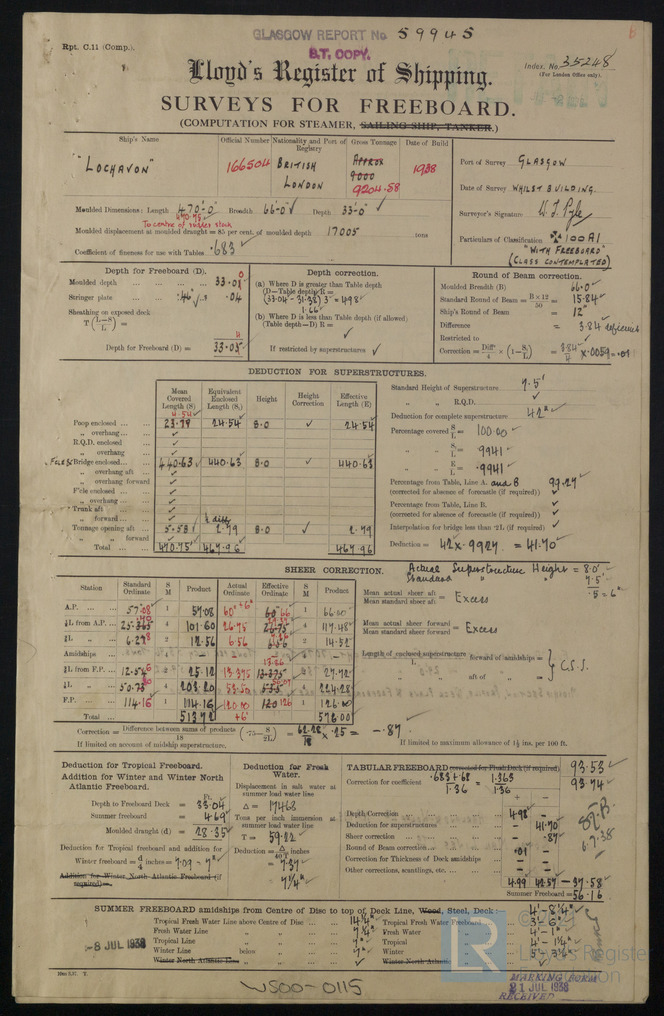 GLASGOW REPORT No 59945
B.T. COPY.
Rpt. C.11 (Comp.).
Index. No. 35248
(For London Office only).
Lloyd's Register of Shipping.
SURVEYS FOR FREEBOARD.
(COMPUTATION FOR STEAMER, SAILING SHIP, TANKER.)
Ship's Name
Official Number
Nationality and Port of Registry
Gross Tonnage
Date of Build
"LOCHAVON"
166504
BRITISH
LONDON
Approx
9000
9204.58
1938
Port of Survey GLASGOW
Date of Survey WHILST BUILDING.
Surveyor's Signature
Particulars of Classification 100A1
"WITH FREEBOARD"
(CLASS CONTEMPLATED)
Moulded Dimensions: Length 470'-0" Breadth 66'-0" Depth 33'-0"
470.75
To centre of rudder stock
Moulded displacement at moulded draught = 85 per cent. of moulded depth 17005 tons
Coefficient of fineness for use with Tables .683
Depth for Freeboard (D).
Moulded depth ... 33.0
Stringer plate ... .46 .04
Sheathing on exposed deck
T (L—S / L) =
Depth for Freeboard (D) =
Depth correction.
(a) Where D is greater than Table depth
(D—Table depth) R =
(33.04 - 31.38) 3 = 4.98
1.66
(b) Where D is less than Table depth (if allowed)
(Table depth—D) R =
If restricted by superstructures
Round of Beam correction.
Moulded Breadth (B) 66.0
Standard Round of Beam = B × 12 / 50 = 15.84
Ship's Round of Beam = 12"
Difference = 3.84 deficiency
Restricted to
Correction = Diff / 4 × (1 − S₁ / L) = 3.84 / 4 × .0059 = .01
DEDUCTION FOR SUPERSTRUCTURES.
Mean Covered Length (S)
Equivalent Enclosed Length (S₁)
Height
Height Correction
Effective Length (E)
Poop enclosed ... 23.79 24.54 8.0 24.54
24.54
„ overhang ...
R.Q.D. enclosed
„ overhang
Bridge enclosed ... 440.63 440.63 8.0 440.63
„ overhang aft
„ overhang forward
F'cle enclosed ...
„ overhang ...
Trunk aft ...
„ forward ...
Tonnage opening aft 5.58 2.79 8.0 2.79
„ „ forward
Total ... 470.75 467.96 467.96
Standard Height of Superstructure 7.5'
„ „ R.Q.D.
Deduction for complete superstructure 42"
Percentage covered S / L = 100.00
„ „ S₁ / L = .9941
„ „ E / L = .9941
Percentage from Table, Line A. and B 99.27
(corrected for absence of forecastle (if required))
Percentage from Table, Line B.
(corrected for absence of forecastle (if required))
Interpolation for bridge less than ·2L (if required)
Deduction = 42 × .9927 = 41.70
SHEER CORRECTION.
Actual Superstructure Height = 8.0'
Standard „ „ 7.5'
.5 = 6"
Station
Standard Ordinate
S M
Product
Actual Ordinate
Effective Ordinate
S M
Product
A.P. ... 57.08 1 57.08 60 +6" 60 66 1 66.00
⅙L from A.P. ... 4 101.60 26.75 4 117.48
⅓L „ 2 12.56 6.56 2 14.52
Amidships
⅓L from F.P. ... 12.56 2 25.12 13.375 13.86 2 27.72
⅙L „ 4 203.20 53.50 4 224.28
F.P. ... 114.16 1 114.16 120.00 120 126 1 126.00
Total ... 513.72 +6" 576.00
Mean actual sheer aft / Mean standard sheer aft = Excess
Mean actual sheer forward / Mean standard sheer forward = Excess
Length of enclosed superstructure / L forward of amidships = C.S.S.
„ „ aft of „ =
Correction = Difference between sums of products / 18 (·75 − S / 2L) = 62.28 / 18 × .25 = −.87
If limited on account of midship superstructure.
If limited to maximum allowance of 1½ ins. per 100 ft.
Deduction for Tropical Freeboard.
Addition for Winter and Winter North Atlantic Freeboard.
Ft.
Depth to Freeboard Deck = 33.04
Summer freeboard = 4.69
Moulded draught (d) = 28.35
Deduction for Tropical freeboard and addition for
Winter freeboard = d / 4 inches = 7.09 - 7"
Addition for Winter North Atlantic Freeboard (if required) =
Deduction for Fresh Water.
Displacement in salt water at summer load water line
Δ = 17468
Tons per inch immersion at summer load water line
T = 59.22
Deduction = Δ / 40 T inches
= 7.37
7¼"
TABULAR FREEBOARD corrected for Flush Deck (if required)
93.53
Correction for coefficient .683+.68 / 1.36 = 1.363 / 1.36
93.74
+ −
Depth Correction ... 4.98 —
Deduction for superstructures ... — 41.70
Sheer correction ... — .87
Round of Beam correction ... .01 —
Correction for Thickness of Deck amidships — —
Other corrections, scantlings, etc. ... — —
4.99 42.57 −37.58
Summer Freeboard = 56.16
6.7.38
SUMMER FREEBOARD amidships from Centre of Disc to top of Deck Line, Wood, Steel, Deck:— 4'- 8¼"
Tropical Fresh Water Line above Centre of Disc ... 14¼"
Fresh Water Line „ „ 7¼"
Tropical Line „ „ 7"
Winter Line below „ 7"
Winter North Atlantic Line „ „
Tropical Fresh Water Freeboard ... 3'- 6"
Fresh Water „ 4'- 1"
Tropical „ 4'- 1¼"
Winter „ 5'- 3¼"
Winter North Atlantic „
-8 JUL 1938
MARKING FORM
21 JUL 1938
RECEIVED
LR
Lloyd's Register
Foundation
WS00-0115